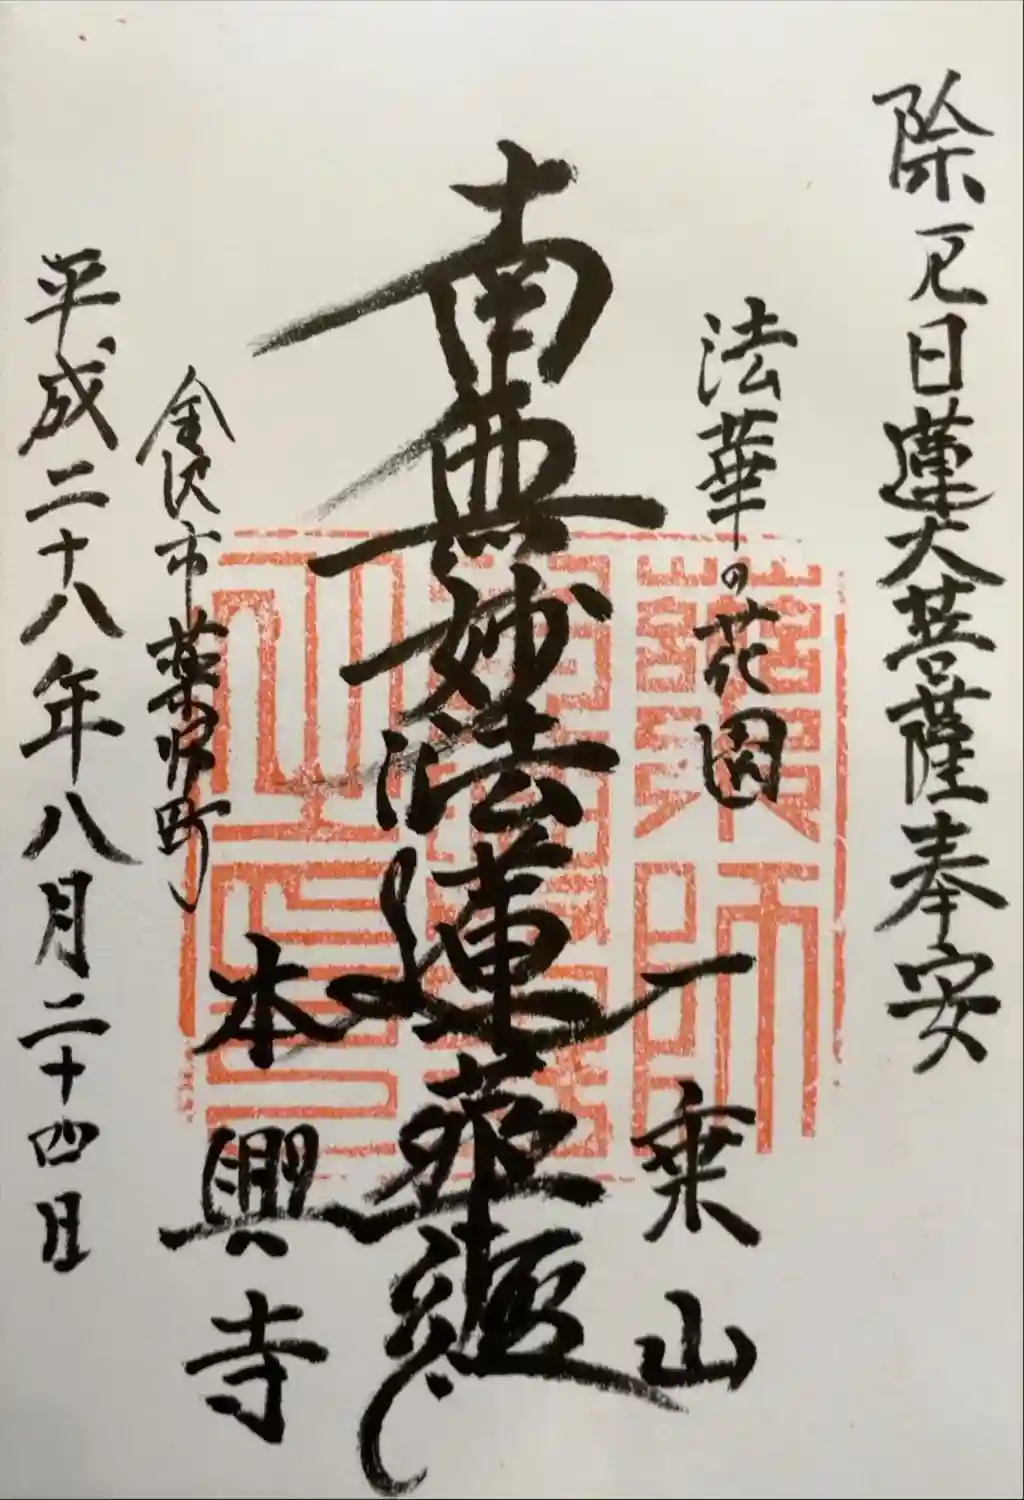 除厄日蓮大菩薩奉安
法華の花園
一乗山
南無妙法蓮華経
本興寺
金沢市薬師町
平成二十八年八月二十四日